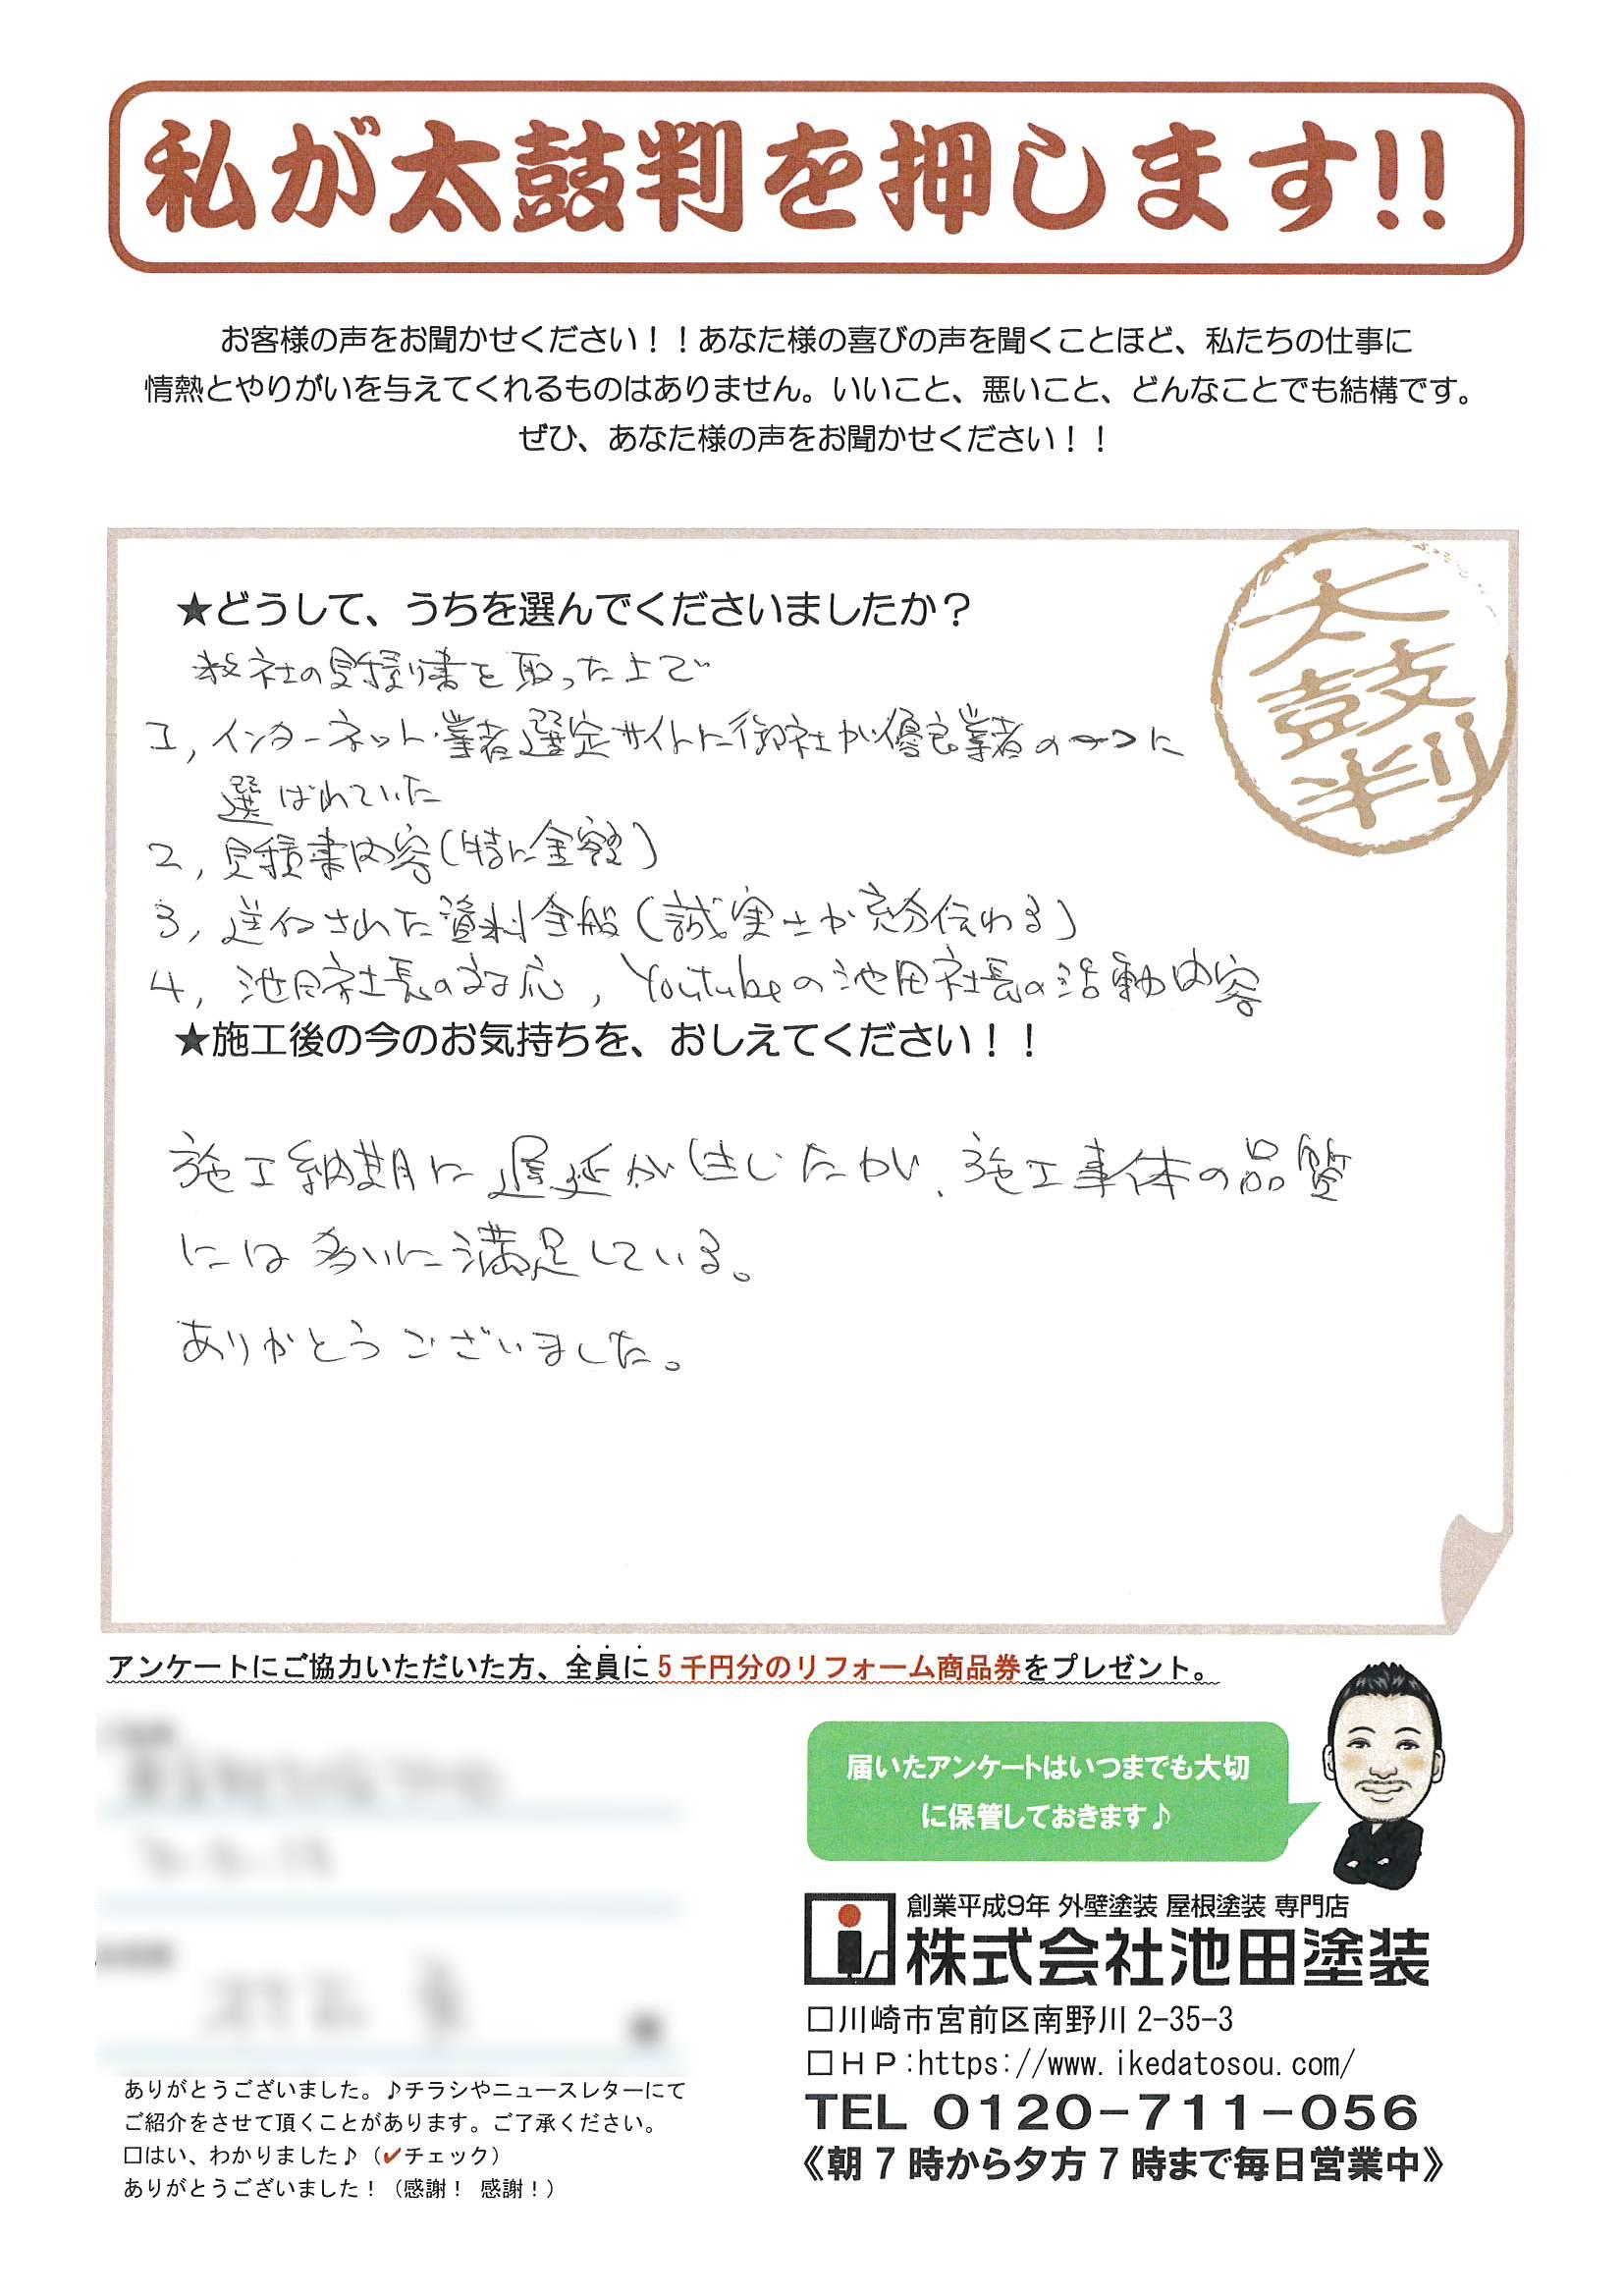 私が太鼓判を押します!!
お客様の声をお聞かせください！！あなた様の喜びの声を聞くことほど、私たちの仕事に
情熱とやりがいを与えてくれるものはありません。いいこと、悪いこと、どんなことでも結構です。
ぜひ、あなた様の声をお聞かせください！！
太鼓判
★どうして、うちを選んでくださいましたか？
数社の見積り書を取った上で
1, インターネット・業者選定サイトに御社が優良業者の一つに
選ばれていた
2, 見積書内容(特に金額)
3, 送付された資料全般(誠実さが充分伝わる)
4, 池田社長の対応, Youtubeの池田社長の活動内容
★施工後の今のお気持ちを、おしえてください！！
施工納期に遅延が生じたが、施工事体の品質
には多いに満足している。
ありがとうございました。
アンケートにご協力いただいた方、全員に5千円分のリフォーム商品券をプレゼント。
届いたアンケートはいつまでも大切
に保管しておきます♪
創業平成9年 外壁塗装 屋根塗装 専門店
株式会社池田塗装
□川崎市宮前区南野川2-35-3
□HP:https://www.ikedatosou.com/
TEL 0120-711-056
《朝7時から夕方7時まで毎日営業中》
ありがとうございました。♪チラシやニュースレターにて
ご紹介をさせて頂くことがあります。ご了承ください。
□はい、わかりました♪（✔チェック）
ありがとうございました！（感謝！ 感謝！）